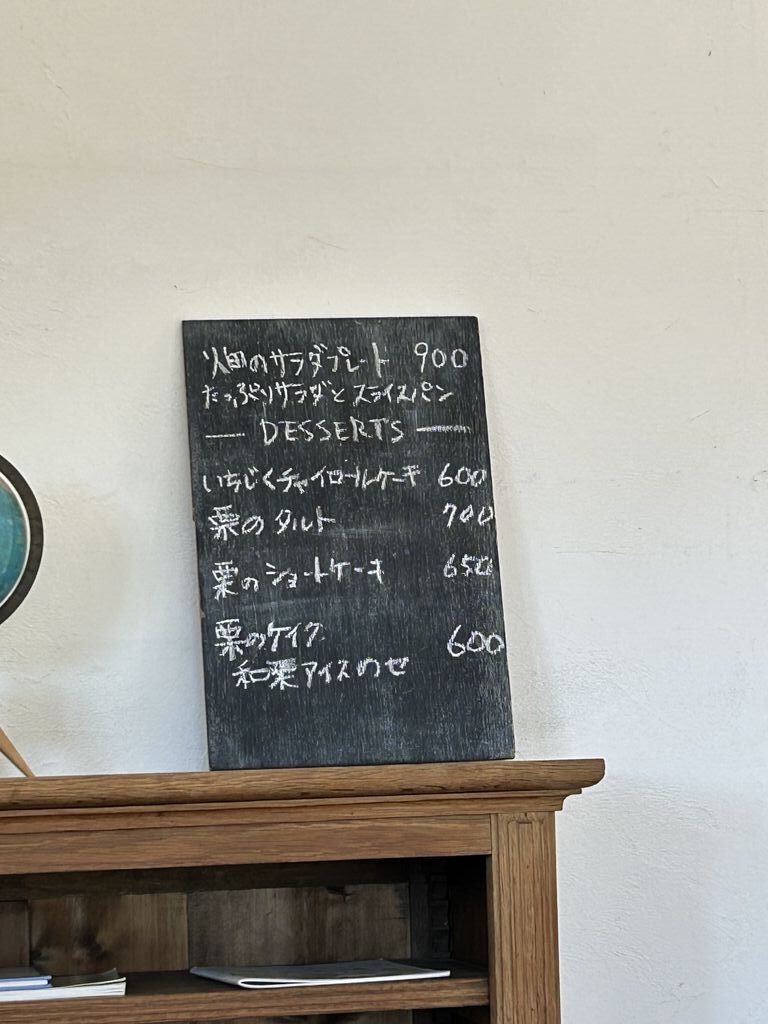 畑のサラダプレート 900
たっぷりサラダとスライスパン
— DESSERTS —
いちじくチャイロールケーキ 600
栗のタルト 700
栗のショートケーキ 650
栗のケイク 600
和栗アイスのせ